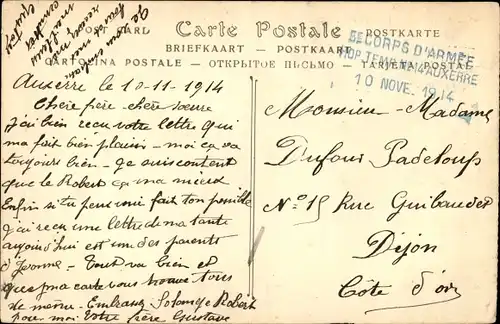 POST CARD Carte Postale POSTKARTE
BRIEFKAART — POSTKAART
CARTOLINA POSTALE — ОТКРЫТОЕ ПИСЬМО — TARJETA POSTAL
8e CORPS D'ARMÉE
HOP. TEMP. AUXERRE
10 NOVE. 1914
Auxerre le 10-11-1914
Chère frère - chère sœure
J'ai bien recu votre lettre qui
ma fait bien plaisir - moi ça va
toujours bien - Je suis content
que le Robert ça va mieux
Enfin si tu peus venir fait ton possible
J'ai recu une lettre de ma tante
aujord'hui est une des parents
d'Yvonne - Tout va bien et
que ma carte vous trouve tous
de même - Embrass Solange Robert
pour moi Votre frère Gustave
Monsieur - Madame
Dufour Padeloup
No 15 Rue Guibaudet
Dijon
Côte d'or